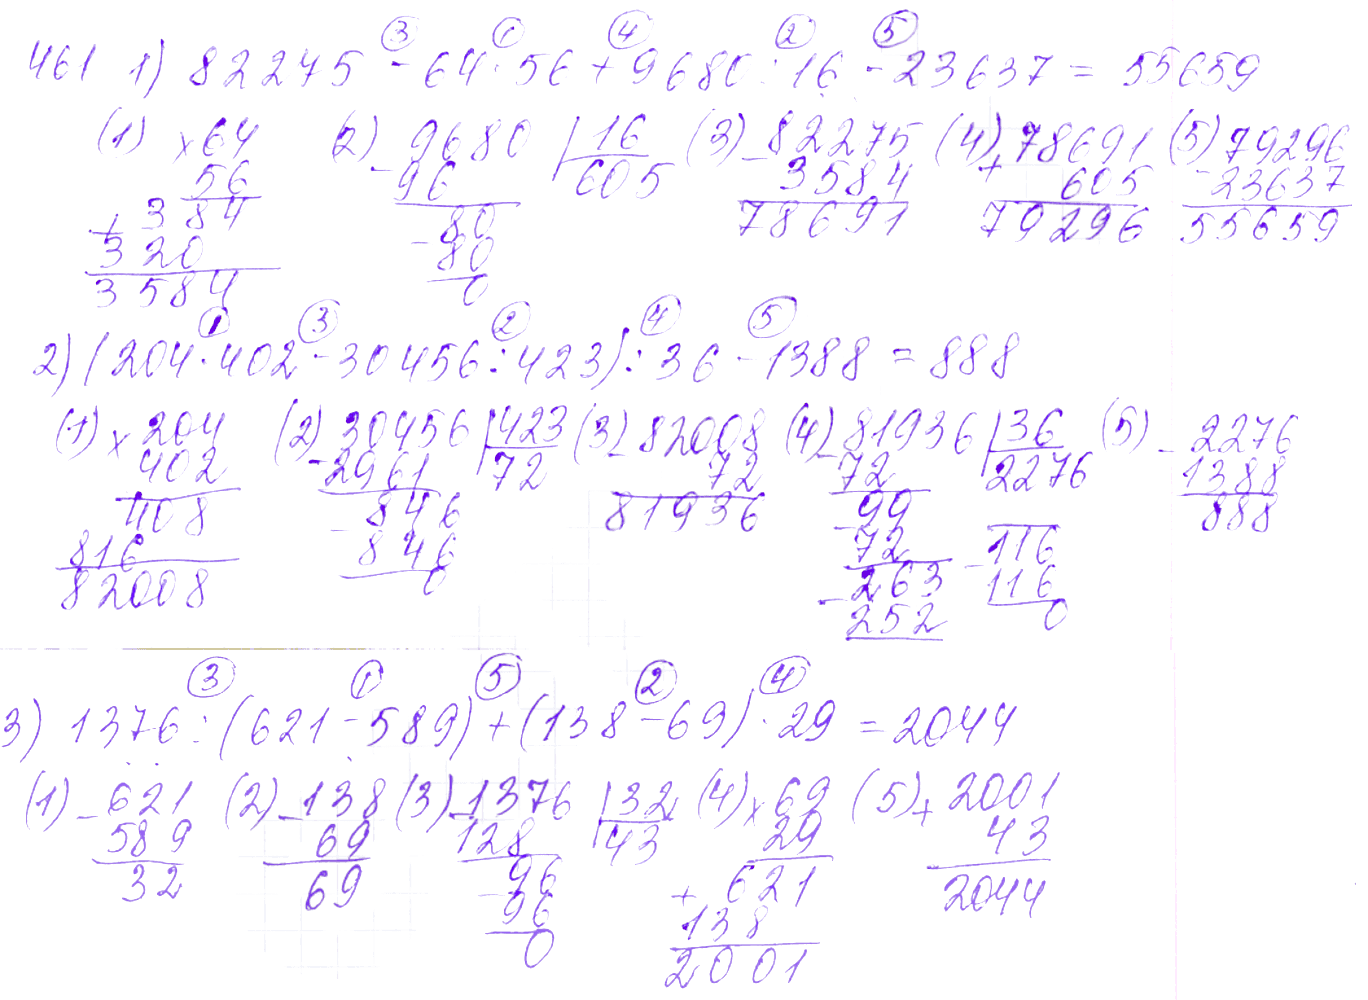 461 1) 82275 - 64 · 56 + 9680 : 16 - 23637 = 55659
③ ① ④ ② ⑤
(1) × 64
56
+ 384
320
3584
2) - 9680 | 16
96 605
- 80
80
0
(3) - 82275
3584
78691
(4) + 78691
605
79296
(5) 79296
- 23637
55659
① ③ ② ④ ⑤
2) (204 · 402 - 30456 : 423) : 36 - 1388 = 888
(1) × 204
402
408
816
82008
(2) - 30456 | 423
2961 72
- 846
846
0
(3) - 82008
72
81936
(4) - 81936 | 36
72 2276
- 99
72
- 263
252
- 116
116
0
(5) - 2276
1388
888
③ ① ⑤ ② ④
3) 1376 : (621 - 589) + (138 - 69) · 29 = 2044
(1) - 621
589
32
(2) - 138
69
69
(3) - 1376 | 32
128 43
- 96
96
0
(4) × 69
29
+ 621
138
2001
(5) + 2001
43
2044